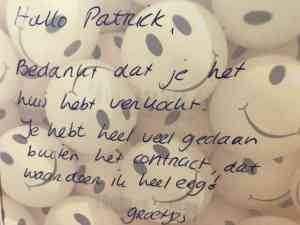 Hallo Patrick,
Bedankt dat je het
huis hebt verkocht.
Je hebt heel veel gedaan
buiten het contract, dat
waardeer ik heel erg!
groetjes